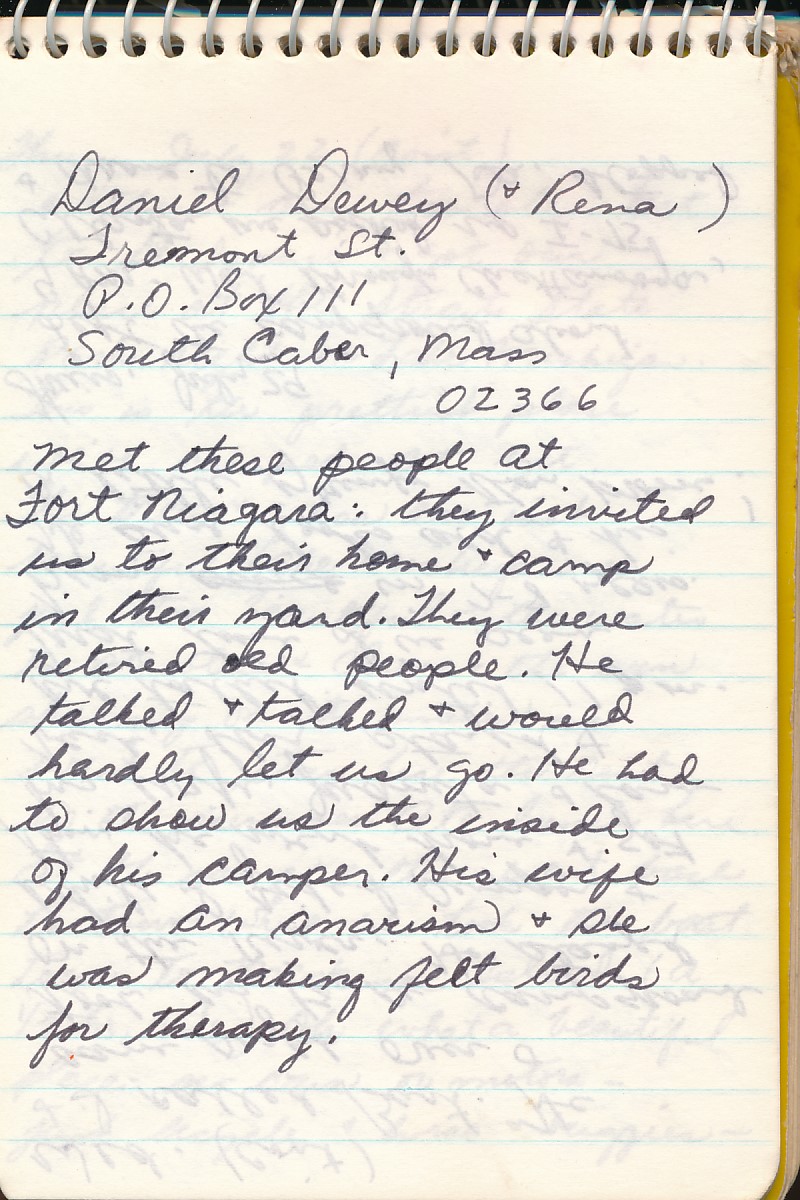 Daniel Dewey (& Rena)
Fremont St.
P.O. Box 111
South Caber, Mass
02366
Met these people at
Fort Niagara: they invited
us to their home & camp
in their yard. They were
retired old people. He
talked & talked & would
hardly let us go. He had
to show us the inside
of his camper. His wife
had an anarism & she
was making felt birds
for therapy.